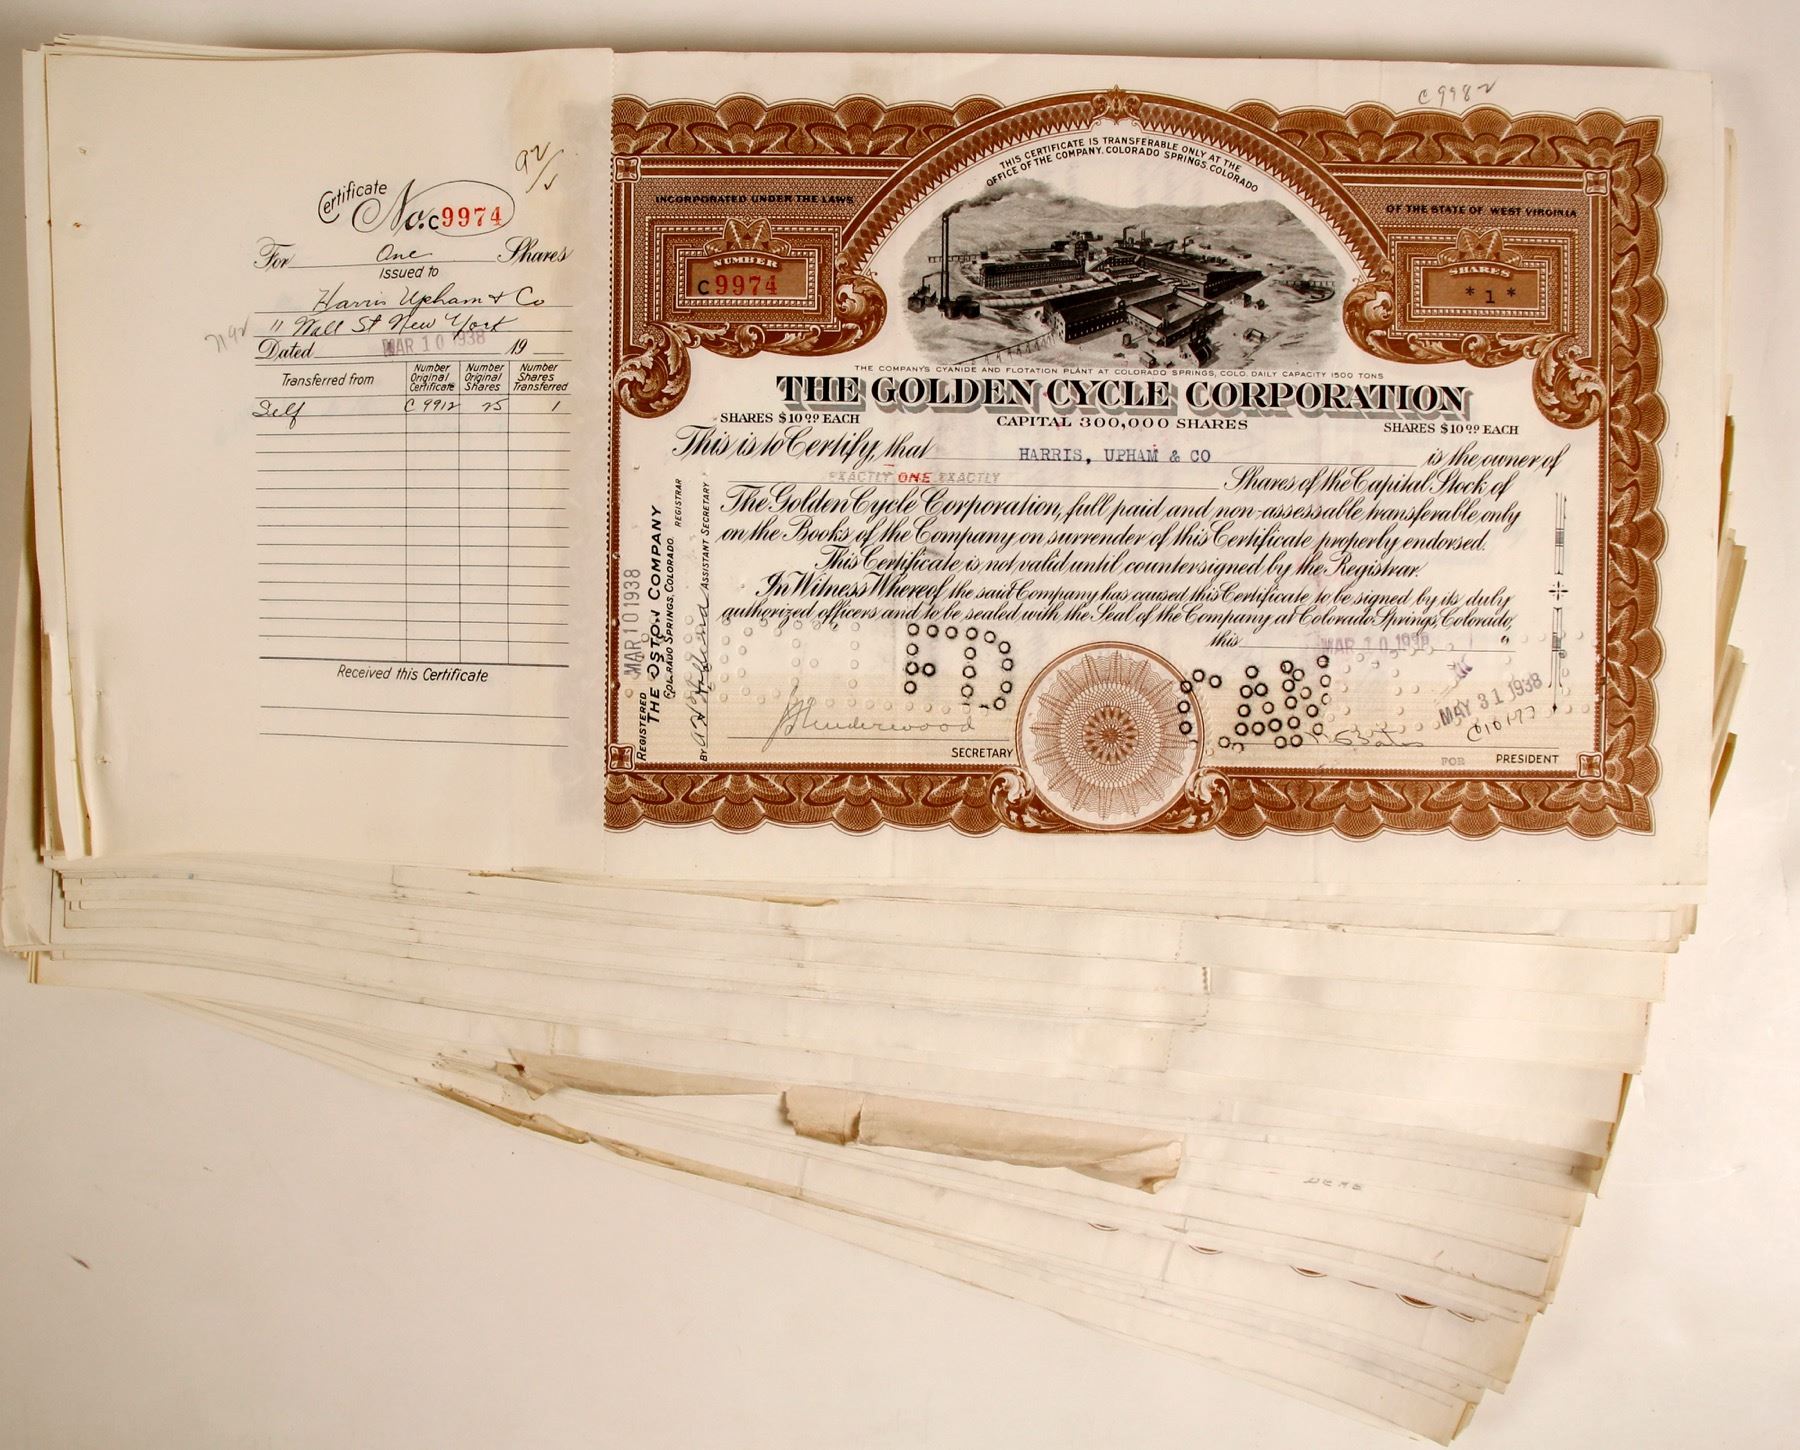 C9982
92/1
Certificate
No. C9974
For One Shares
Issued to
Harris Upham & Co
11 Wall St New York
Dated MAR 10 1938 19
Transferred from
Number Original Certificate
Number Original Shares
Number Shares Transferred
Self C 9912 25 1
Received this Certificate
THIS CERTIFICATE IS TRANSFERABLE ONLY AT THE
OFFICE OF THE COMPANY, COLORADO SPRINGS, COLORADO
INCORPORATED UNDER THE LAWS
OF THE STATE OF WEST VIRGINIA
NUMBER
C9974
SHARES
* 1 *
THE COMPANY'S CYANIDE AND FLOTATION PLANT AT COLORADO SPRINGS, COLO. DAILY CAPACITY 1500 TONS
THE GOLDEN CYCLE CORPORATION
SHARES $10.00 EACH
CAPITAL 300,000 SHARES
SHARES $10.00 EACH
This is to Certify, that HARRIS, UPHAM & CO is the owner of
EXACTLY ONE EXACTLY Shares of the Capital Stock of
The Golden Cycle Corporation, full paid and non-assessable, transferable only
on the Books of the Company on surrender of this Certificate properly endorsed.
This Certificate is not valid until countersigned by the Registrar.
In Witness Whereof, the said Company has caused this Certificate to be signed by its duly
authorized officers and to be sealed with the Seal of the Company at Colorado Springs, Colorado,
this MAR 10 1938
MAY 31 1938
C10177
SECRETARY
FOR PRESIDENT
REGISTERED MAR 10 1938
COLORADO SPRINGS, COLORADO. REGISTRAR
BY ASSISTANT SECRETARY